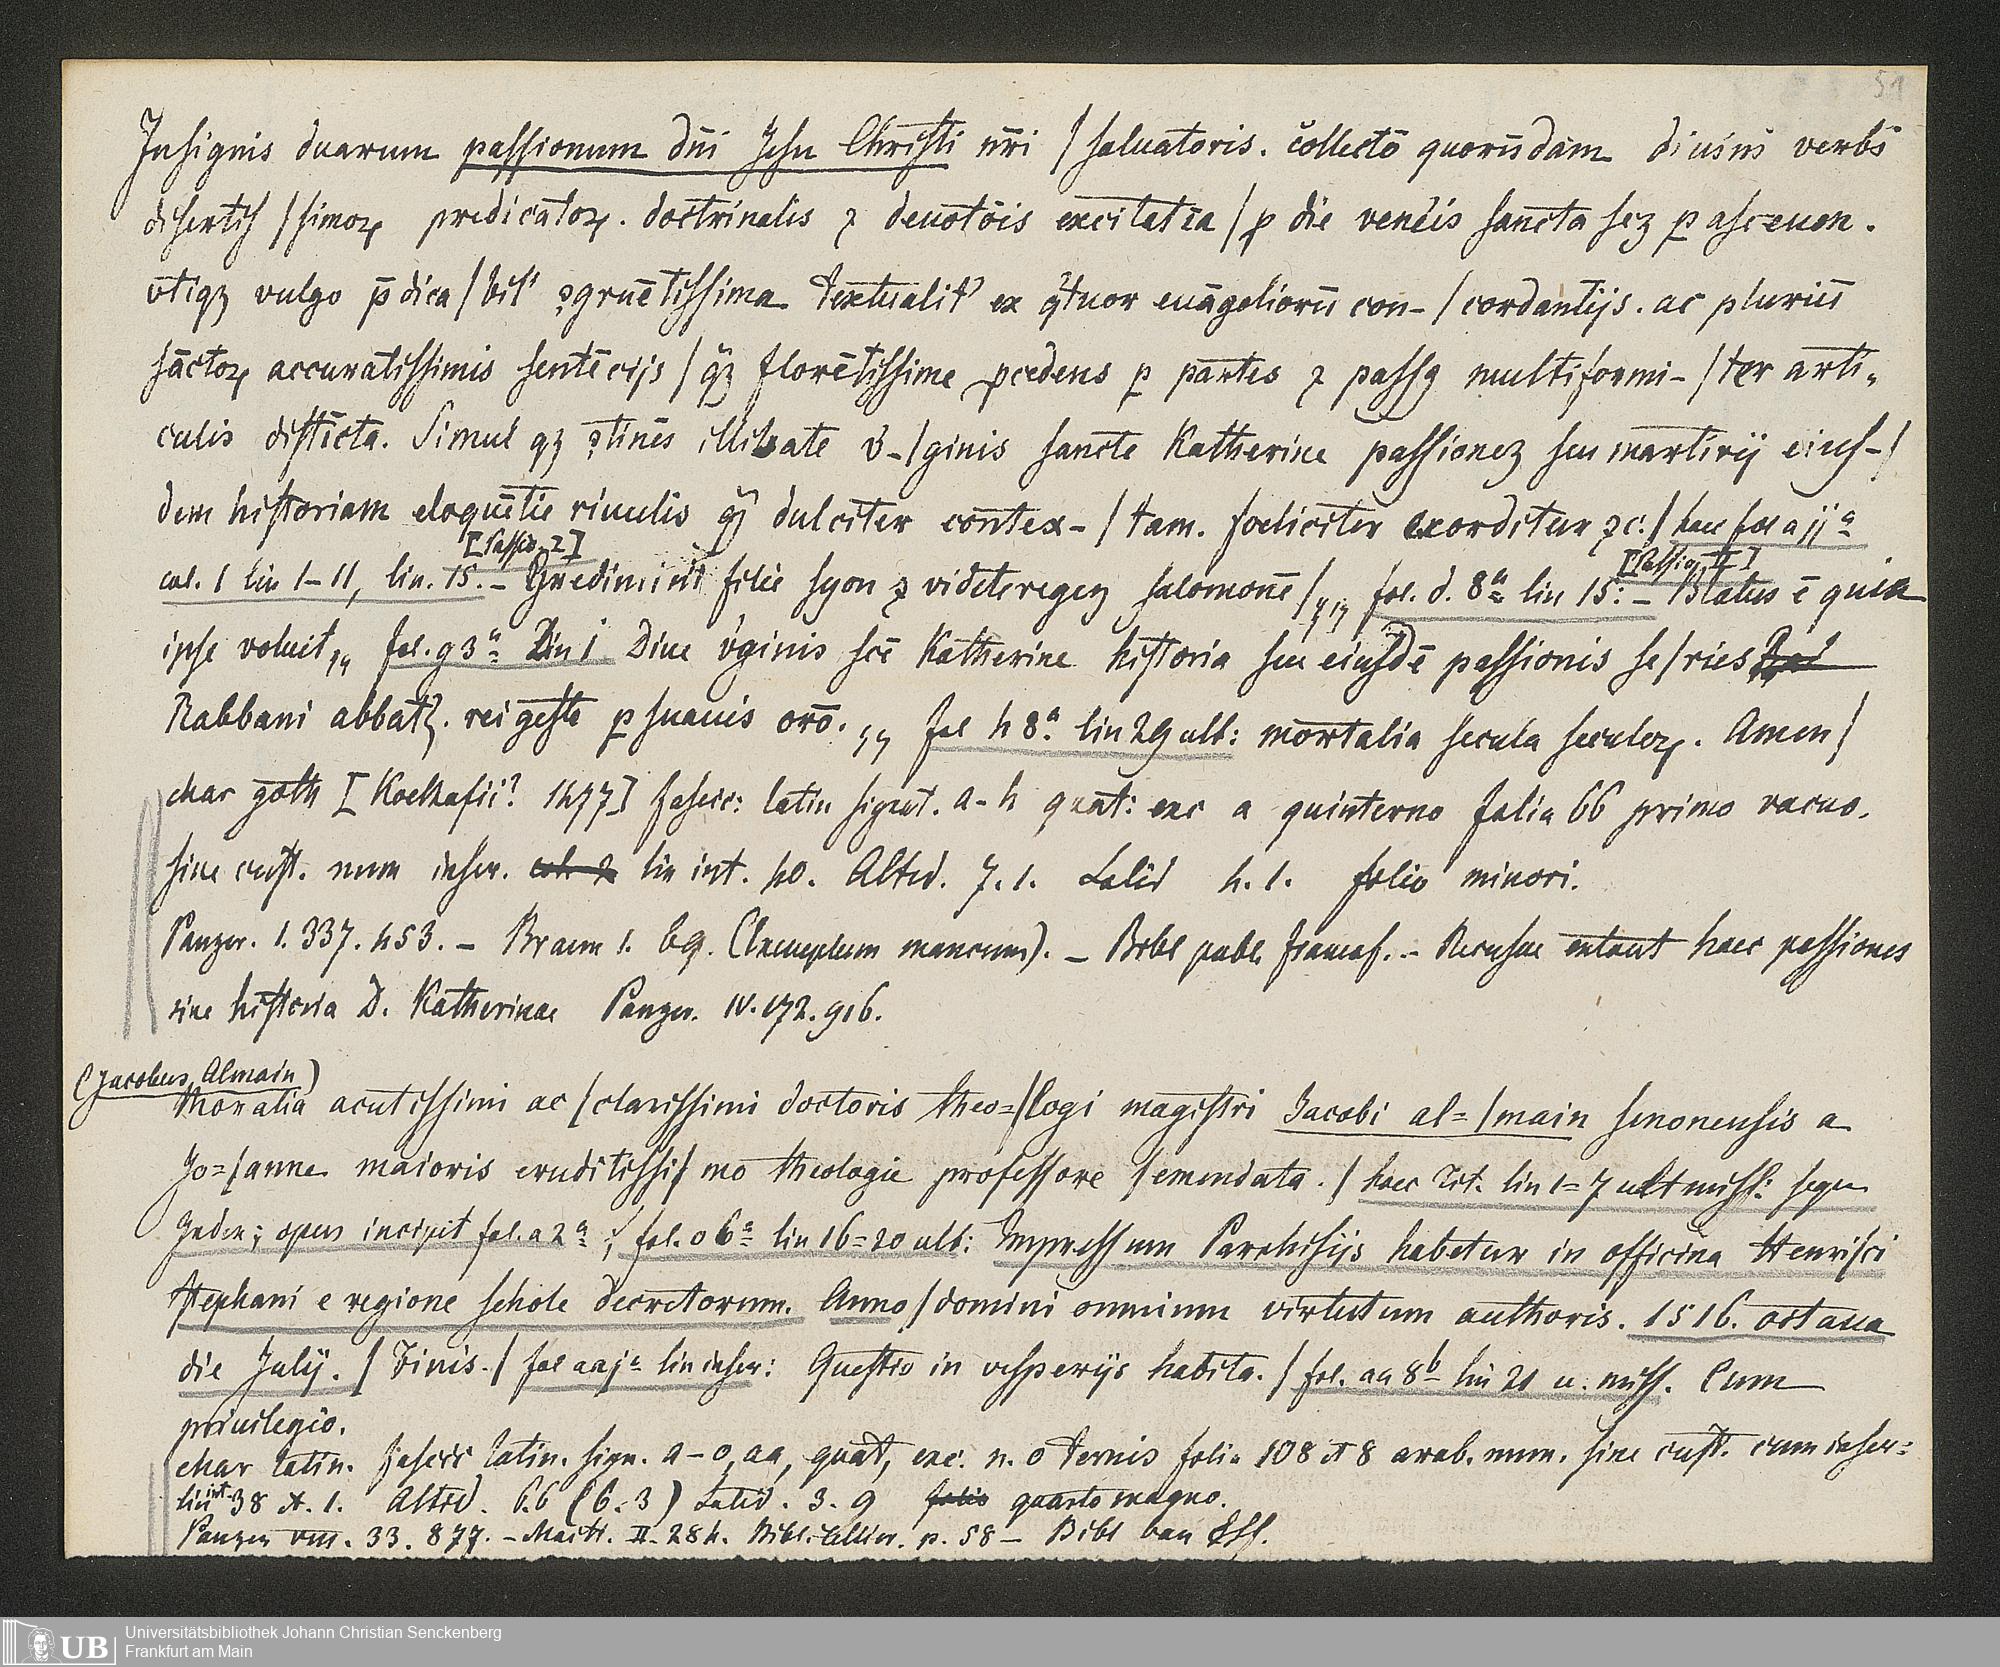 51
Insignis duarum passionum dn̄i Jesu Christi nr̄i / saluatoris. collectō quorūdam diuinū verbū
disertis / simoꝝ predicatoꝝ. doctrinalis ⁊ deuotōis excitatīa / ꝑ die venēis sancta sez pascēuen.
vtiqz vulgo p̄dica / bil' ꝯgruētissima textualit' ex q̄tuor euāgeliorū con- / cordantijs. ac pluriū
sāctoꝝ accuratissimis sentēcijs / qz florētissime ꝓcedens ꝑ partes ⁊ passꝫ multiformi- / ter arti„
culis distīcta. Simul qz ꝯtinēs illibate v̄- / ginis sancte Katherine passionez seu martirij eius- /
dem historiam eloquētie riuulis qz dulciter contex- / tam. foeliciter exorditur ⁊c. / haec fol a ij a
[Passio 2]
col. 1 lin 1–11, lin. 15. – Egredimini filie syon ⁊ videte regez salomonē / „ fol. d. 8a lin 15: – Blatus ē quia
[Passio II]
ipse voluit „ fol. g 3a Lin 1 Diue v̄ginis scē Katherine historia seu eiusdē passionis se / ries
Rabbani abbat. rei geste ꝑ suauis orō. „ fol h 8a lin 29 ult: mortalia secula seculoꝝ. Amen /
char goth [Koelhofii? 1477] fascic: latin signat. a–h quat: exc a quinterno folia 66 primo vacuo.
sine cust. num inscr. col 2 lin int. 40. Altid. 7.1. Latid 4.1. folio minori.
Panzer. 1. 337. 453. – Braun 1. 69. (Exemplum mancum). – Bibl publ. francof. – Recusae extant haec passiones
sine historia D. Katherinae Panzer. IV. 172. 916.
(Jacobus Almain)
Moralia acutissimi ac / clarissimi doctoris theo= / logi magistri Jacobi al= / main senonensis a
Jo= / anne maioris eruditissi / mo theologie professore / emendata. / haec Tit. lin 1=7 ult miss: sequ
Index; opus incipit fol. a 2a; fol. o 6a lin 16=20 ult: Impressum Parrhisijs habetur in officina Henrisci
Stephani e regione schole decretorum. Anno / domini omnium virtutum authoris. 1516. octaua
die Julij. / Finis. / fol aaja lin inscr: Questio in vesperijs habita. / fol. aa 8b lin 21 u. miss. Cum
priuilegio.
char latin. fascic latin. sign. a–o, aa, quat, exc. n. o ternis folia 108 et 8 arab. num. sine cust. cum inscr:
lin int. 38 et. 1. Altid. 6.6 (6.3) Latid. 3. 9 folio quarto magno.
Panzer VIII. 33. 877. – Maitt. II. 284. Bibl. tellier. p. 58 – Bibl van Ess.
UB
Universitätsbibliothek Johann Christian Senckenberg
Frankfurt am Main